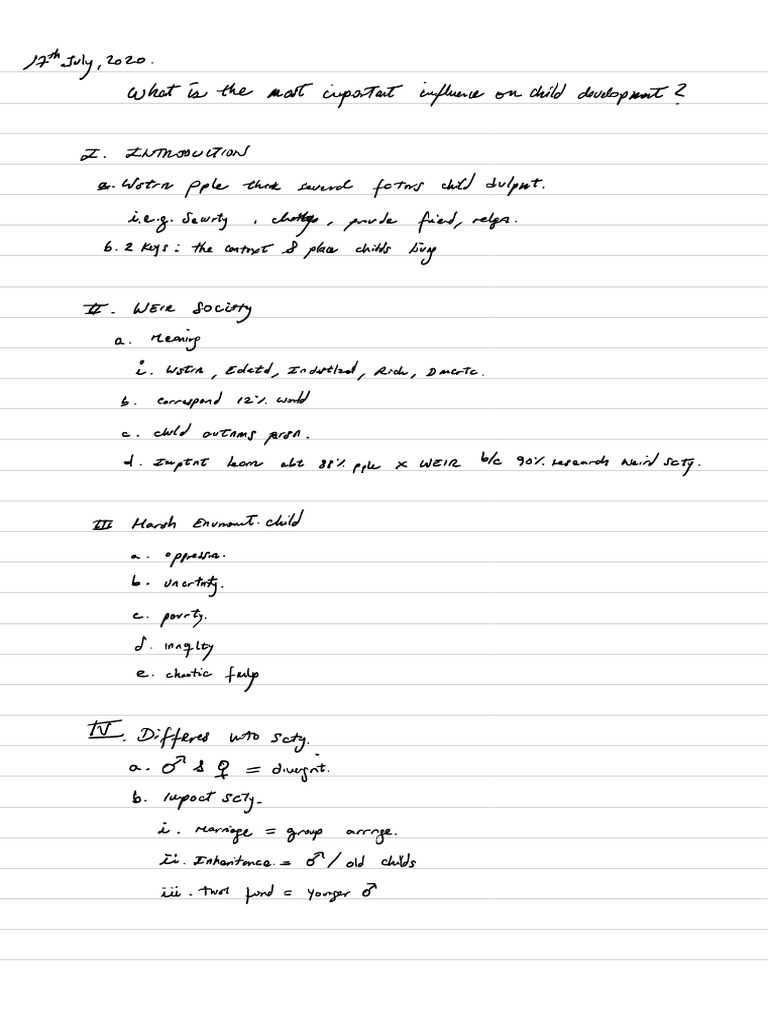 17th July, 2020.
What is the most important influence on child development?
I. INTRODUCTION
a. Wstrn pple think several factors child dvlpmt.
i.e.g. Securty , , provide friend, relgn.
b. 2 keys: the context & place childs living
II. WEIR Society
a. Meaning
i. Wstrn, Edctd, Indsttlzed, Rich, Dmcrtc.
b. correspond 12% world
c. child autnms persn.
d. Imptnt learn abt 88% pple x WEIR b/c 90% research weird scty.
III Harsh Envnomt. child
a. oppression.
b. uncrtnty.
c. povrty.
d. innqlty
e. chaotic
IV. Differes into scty.
a. ♂ & ♀ = divergnt.
b. Impact scty.
i. Marriage = group arrnge.
ii. Inheritance = ♂ / old childs
iii. fund = younger ♂